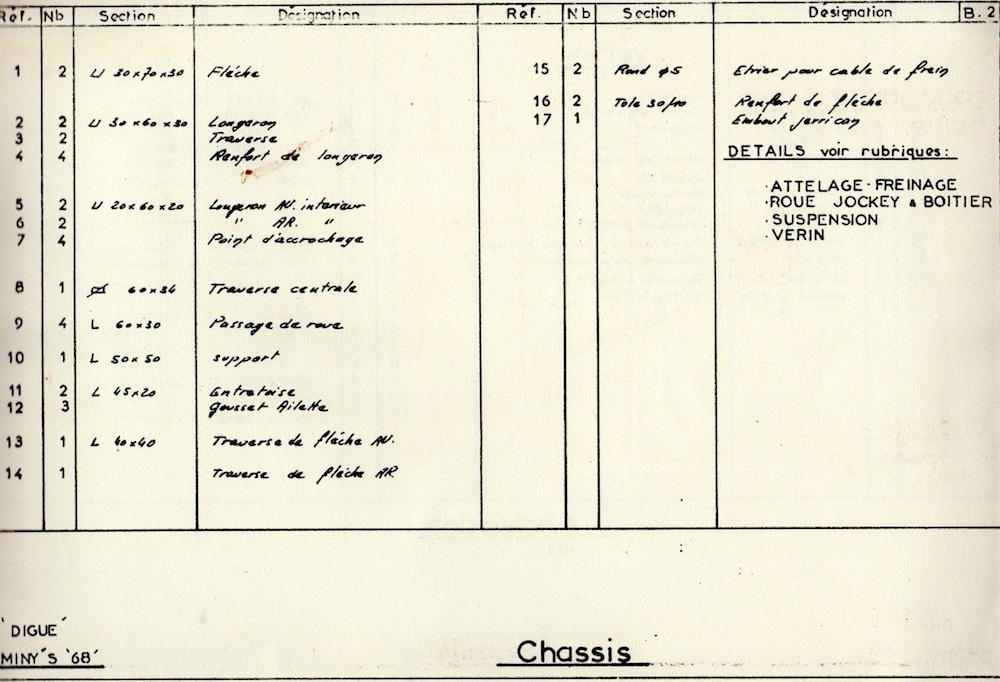 Réf. Nb Section Désignation
1 2 U 30x70x30 Flèche
2 2 U 30x60x30 Longeron
3 2 Traverse
4 4 Renfort de longeron
5 2 U 20x60x20 Longeron AV. interieur
6 2 " AR. "
7 4 Point d'accrochage
8 1 60x34 Traverse centrale
9 4 L 60x30 Passage de roue
10 1 L 50x50 support
11 2 L 45x20 Entretoise
12 3 Gousset Ailette
13 1 L 40x40 Traverse de flèche AV.
14 1 Traverse de flèche AR.
Réf. Nb Section Désignation B.2
15 2 Rond φ5 Etrier pour cable de frein
16 2 Tole 30/10 Renfort de flèche
17 1 Embout jerrican
DETAILS voir rubriques:
·ATTELAGE·FREINAGE
·ROUE JOCKEY & BOITIER
·SUSPENSION
·VERIN
'DIGUE'
MINY'S '68'
Chassis